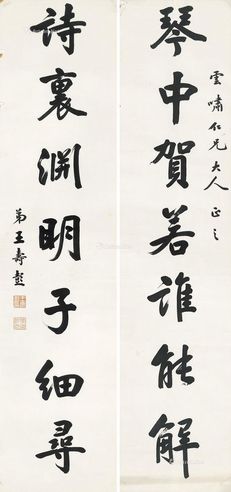 雲嘯仁兄大人正之
琴中賀若誰能解
詩裏淵明子細尋
弟王壽彭